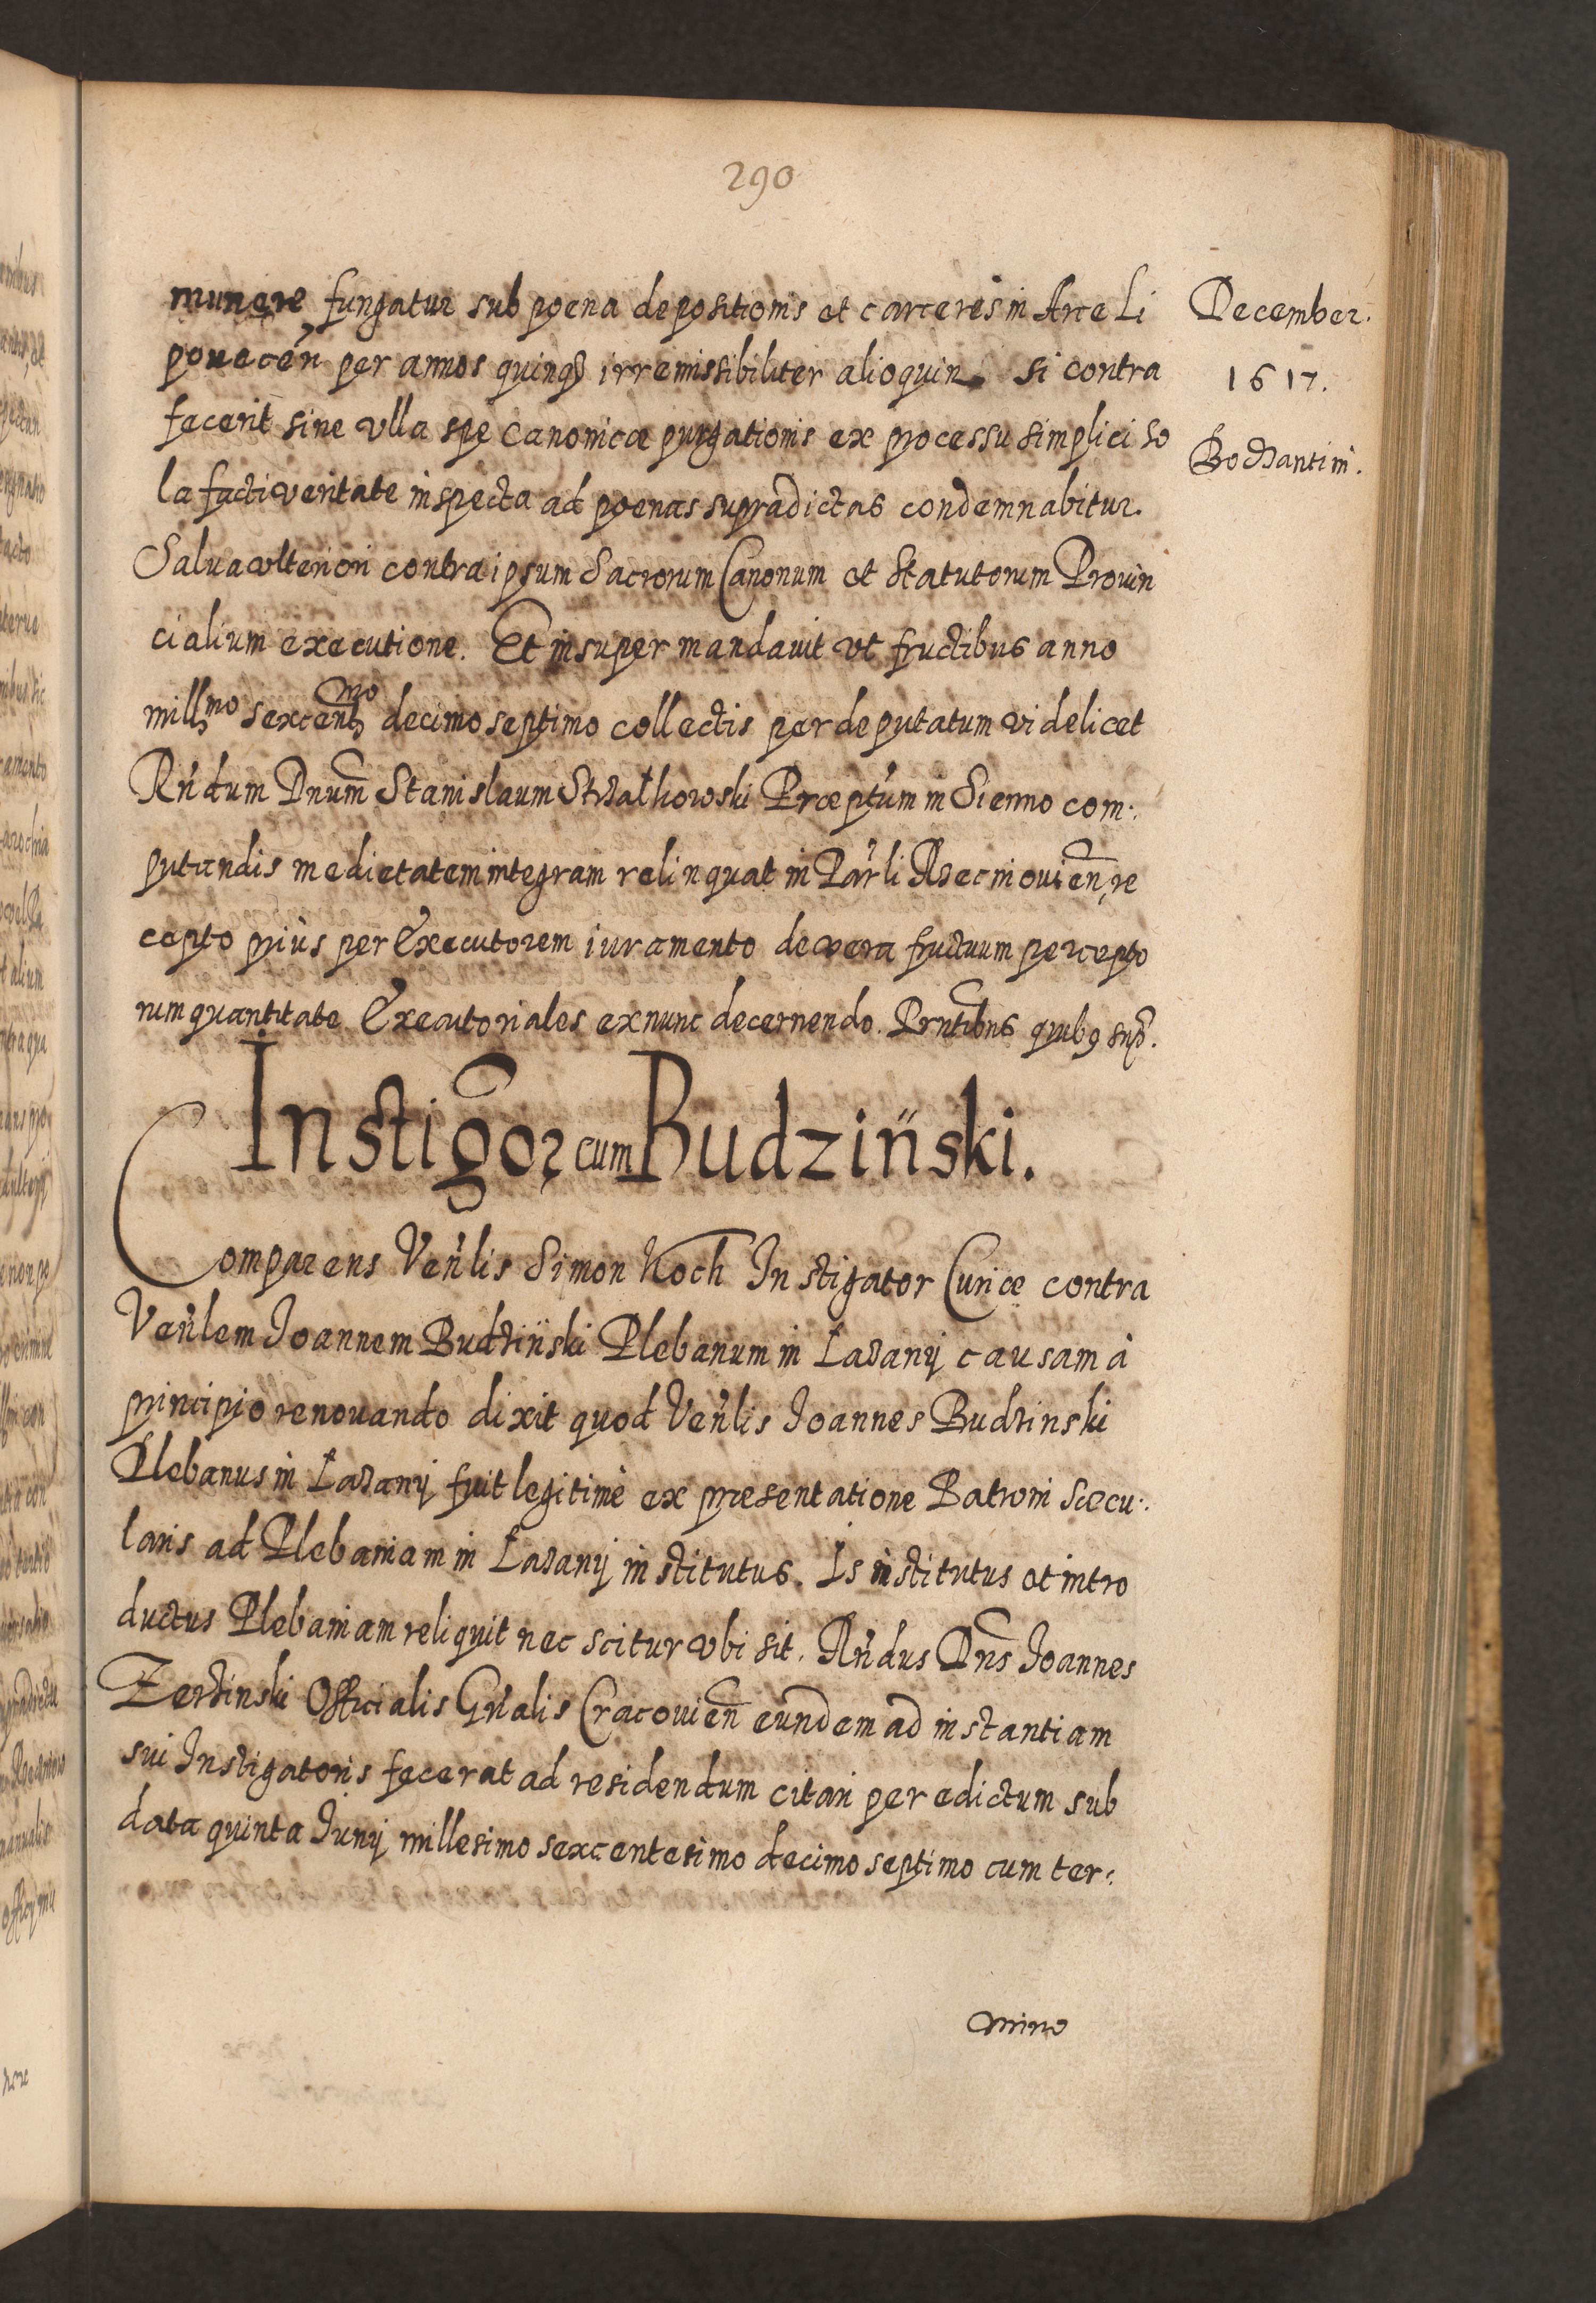 290
munere fungatur sub poena depositionis et carceris in Arce Li
povecen̄ per annos quinq₃ irremissibiliter alioquin si contra
fecerit sine vlla spe Canonicæ purgationis ex processu simplici so
la facti veritate inspecta ad poenas supradictas condemnabitur.
Salua vlteriori contra ipsum Sacrorum Canonum et Statutorum Prouin
cialium executione. Et insuper mandauit vt fructibus anno
mill̄mo sexcentmo decimo septimo collectis per deputatum videlicet
Rn̄dum Dnum̄ Stanislaum Præptum in Sienno com:
putandis medietatem integram relinquat in Parli re
cepto prius per Executorem iuramento de vera fructuum percepto
rum quantitate. Executoriales ex nunc decernendo. Prntibus quib9 sup̄.
December.
1617.
Bodzantini.
Instigor cum Budziński.
Comparens Ven̄lis Simon Koch Instigator Curiæ contra
Ven̄lem Joannem Budziński Plebanum in Łazany causam à
principio renouando dixit quod Ven̄lis Joannes Budzinski
Plebanus in Łazany fuit legitimè ex præsentatione Patroni Sæcu:
laris ad Plebaniam in Łazany institutus. Is institutus et intro
ductus Plebaniam reliquit nec scitur vbi sit. Rn̄dus Dn̄s Joannes
Zerzinski Officialis Gn̄alis Cracouien̄ eundem ad instantiam
sui Instigatoris fecerat ad residendum citari per edictum sub
data quinta Junij millesimo sexcentesimo decimo septimo cum ter:
mino